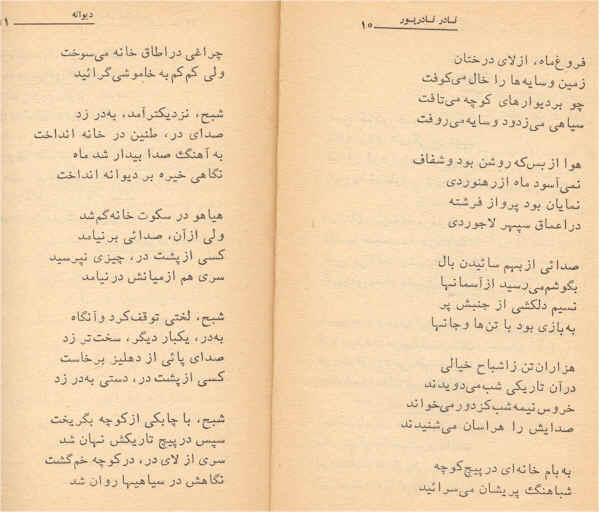 نادر نادرپور
۱۵
فروغ ماه، از لای درختان
زمین و سایه‌ها را خال می‌کوفت
چو بر دیوارهای کوچه می‌تافت
سیاهی می‌زدود و سایه می‌روفت
هوا از بس که روشن بود و شفاف
نمی‌آسود ماه از رهنوردی
نمایان بود پرواز فرشته
در اعماق سپهر لاجوردی
صدائی از بهم سائیدن بال
بگوشم می‌رسید از آسمانها
نسیم دلکشی از جنبش پر
به بازی بود با تن‌ها و جانها
هزاران تن ز اشباح خیالی
در آن تاریکی شب می‌دویدند
خروس نیمه‌شب کز دور می‌خواند
صدایش را هراسان می‌شنیدند
به بام خانه‌ای در پیچ کوچه
شباهنگ پریشان می‌سرائید
دیوانه
چراغی در اطاق خانه می‌سوخت
ولی کم‌کم به خاموشی گرائید
شبح، نزدیکتر آمد، به‌در زد
صدای در، طنین در خانه انداخت
به آهنگ صدا بیدار شد ماه
نگاهی خیره بر دیوانه انداخت
هیاهو در سکوت خانه گم شد
ولی از آن، صدائی بر نیامد
کسی از پشت در، چیزی نپرسید
سری هم از میانش در نیامد
شبح، لختی توقف کرد و آنگاه
به‌در، یکبار دیگر، سخت‌تر زد
صدای پائی از دهلیز برخاست
کسی از پشت در، دستی به‌در زد
شبح، با چابکی از کوچه بگریخت
سپس در پیچ تاریکش نهان شد
سری از لای در، در کوچه خم گشت
نگاهش در سیاهیها روان شد